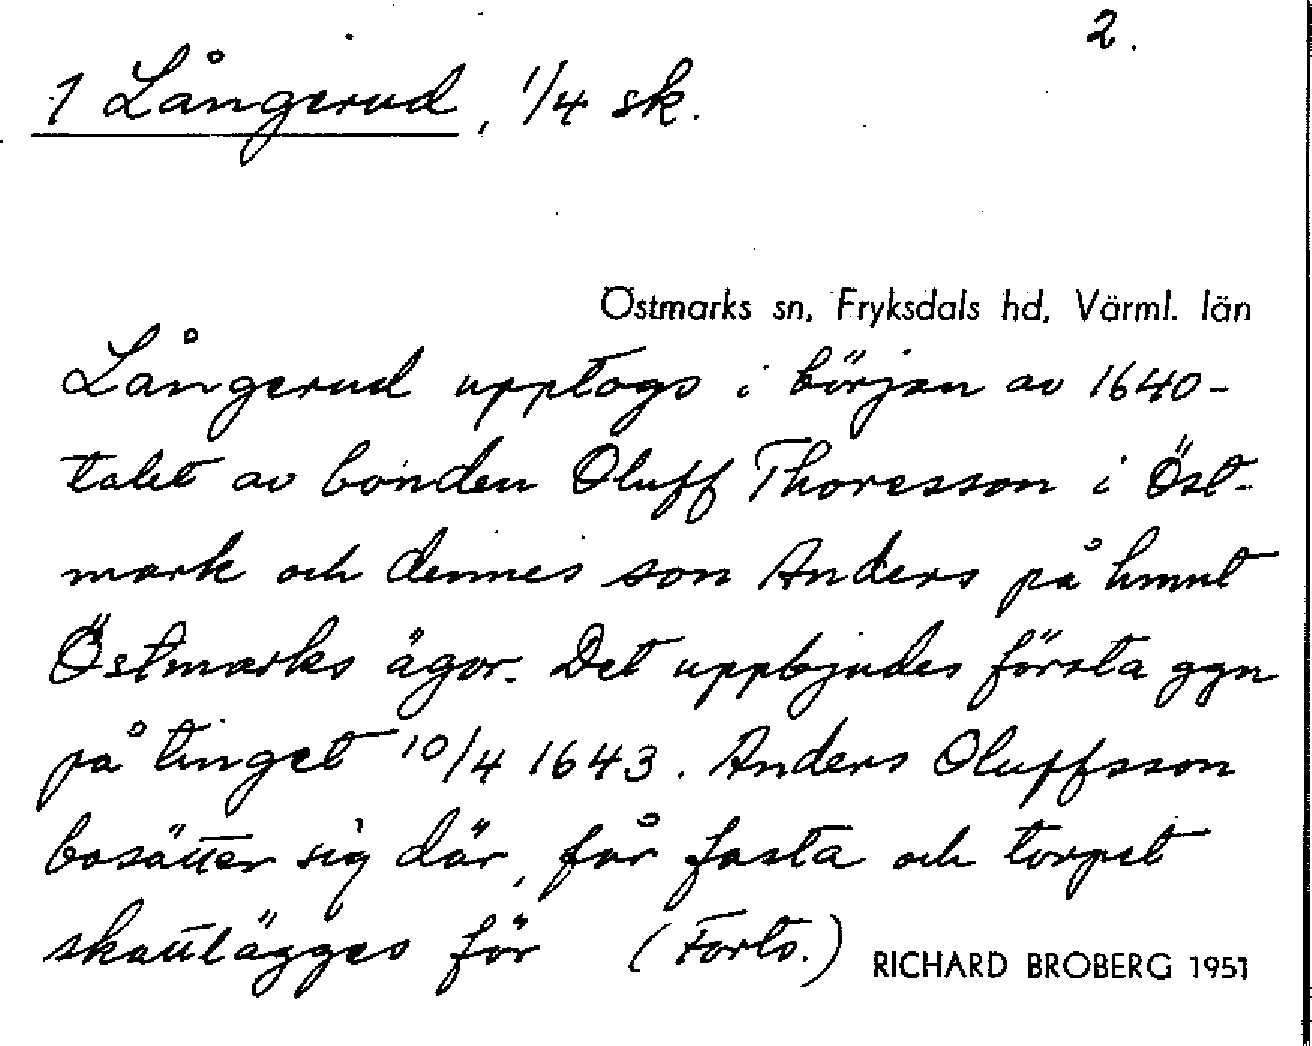 2.
1 Långerud, 1/4 sk.
Östmarks sn, Fryksdals hd, Värml. län
Långerud upptogs i början av 1640-
talet av bonden Oluff Thoresson i Öst-
mark och dennes son Anders på hmnt
Östmarks ägor. Det uppbjudes första ggn
på tinget 10/4 1643. Anders Oluffsson
bosätter sig där, får fasta och torpet
skattlägges för (Forts.)
RICHARD BROBERG 1951